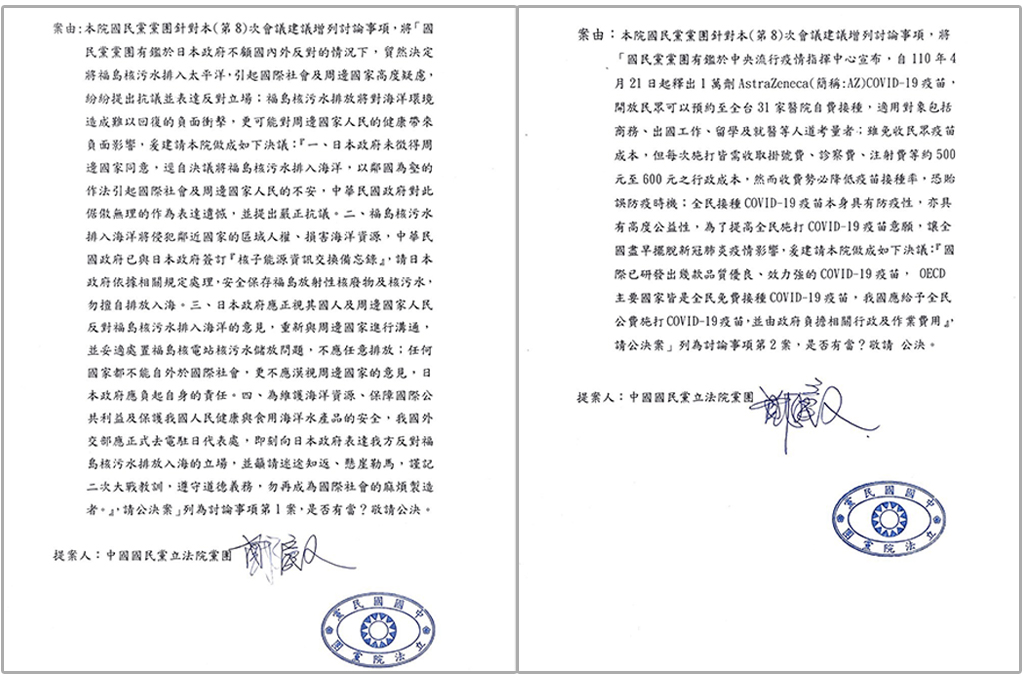 案由:本院國民黨黨團針對本(第8)次會議建議增列討論事項，將「國
民黨黨團有鑑於日本政府不顧國內外反對的情況下，貿然決定
將福島核污水排入太平洋，引起國際社會及周邊國家高度疑慮，
紛紛提出抗議並表達反對立場；福島核污水排放將對海洋環境
造成難以回復的負面衝擊，更可能對周邊國家人民的健康帶來
負面影響，爰建請本院做成如下決議：『一、日本政府未徵得周
邊國家同意，逕自決議將福島核污水排入海洋，以鄰國為壑的
作法引起國際社會及周邊國家人民的不安，中華民國政府對此
倨傲無理的作為表達遺憾，並提出嚴正抗議。二、福島核污水
排入海洋將侵犯鄰近國家的區域人權、損害海洋資源，中華民
國政府已與日本政府簽訂『核子能源資訊交換備忘錄』，請日本
政府依據相關規定處理，安全保存福島放射性核廢物及核污水，
勿擅自排放入海。三、日本政府應正視其國人及周邊國家人民
反對福島核污水排入海洋的意見，重新與周邊國家進行溝通，
並妥適處置福島核電站核污水儲放問題，不應任意排放；任何
國家都不能自外於國際社會，更不應漠視周邊國家的意見，日
本政府應負起自身的責任。四、為維護海洋資源、保障國際公
共利益及保護我國人民健康與食用海洋水產品的安全，我國外
交部應正式去電駐日代表處，即刻向日本政府表達我方反對福
島核污水排放入海的立場，並籲請迷途知返、懸崖勒馬，謹記
二次大戰教訓，遵守道德義務，勿再成為國際社會的麻煩製造
者。』，請公決案」列為討論事項第1案，是否有當？敬請公決。
提案人：中國國民黨立法院黨團
中國國民黨
立法院黨團
案由：本院國民黨黨團針對本(第8)次會議建議增列討論事項，將
「國民黨黨團有鑑於中央流行疫情指揮中心宣布，自110年4
月21日起釋出1萬劑AstraZeneca(簡稱:AZ)COVID-19疫苗，
開放民眾可以預約至全台31家醫院自費接種，適用對象包括
商務、出國工作、留學及就醫等人道考量者；雖免收民眾疫苗
成本，但每次施打皆需收取掛號費、診察費、注射費等約500
元至600元之行政成本，然而收費勢必降低疫苗接種率，恐貽
誤防疫時機；全民接種COVID-19疫苗本身具有防疫性，亦具
有高度公益性，為了提高全民施打COVID-19疫苗意願，讓全
國盡早擺脫新冠肺炎疫情影響，爰建請本院做成如下決議：『國
際已研發出幾款品質優良、效力強的COVID-19疫苗， OECD
主要國家皆是全民免費接種COVID-19疫苗，我國應給予全民
公費施打COVID-19疫苗，並由政府負擔相關行政及作業費用』，
請公決案」列為討論事項第2案，是否有當？敬請 公決。
提案人：中國國民黨立法院黨團
中國國民黨
立法院黨團